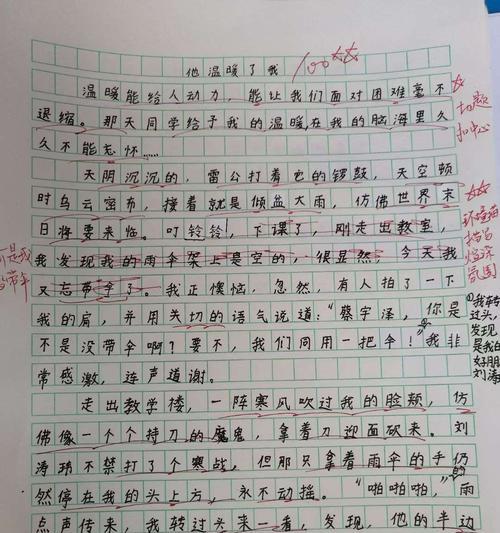 他温暖了我 100
温暖能给人动力，能让我们面对困难毫不
退缩。那天同学给予我的温暖，在我的脑海里久
久不能忘怀……
扣中心
天阴沉沉的，雷公打着他的锣鼓，天空顿
时乌云密布，接着就是倾盆大雨，仿佛世界末
日将要来临。叮铃铃，下课了，刚走出教室，
我发现我的雨伞架上是空的，很显然，今天我
又忘带伞了。我正懊恼，忽然，有人拍了一下
我的肩，并用关切的语气说道：“蔡宇泽，你是
不是没带伞啊？要不，我们同用一把伞！”我非
常感激，连声道谢。
我转
过头，
发现
是我的
好朋
刘涛
走出教学楼，一阵寒风吹过我的脸颊，仿
佛像一个个持刀的魔鬼，拿着刀迎面砍来。刘
涛玮不禁打了个寒战，但那只拿着雨伞的手仍
然停在我的头上方，永不动摇。“啪啪啪，”雨
点声传来，我转过头来一看，发现，他的半边